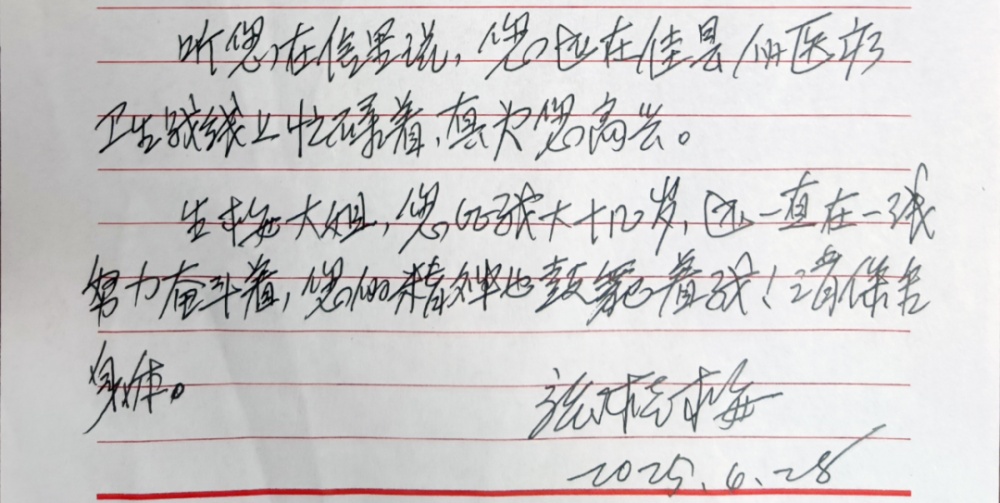 听您在信里说，您还在佳县的医疗
卫生战线上忙碌着，真为您高兴。
生梅大姐，您比我大十几岁，还一直在一线
努力奋斗着，您的精神也鼓舞着我！请保吉
身体。
张桂梅
2025.6.28